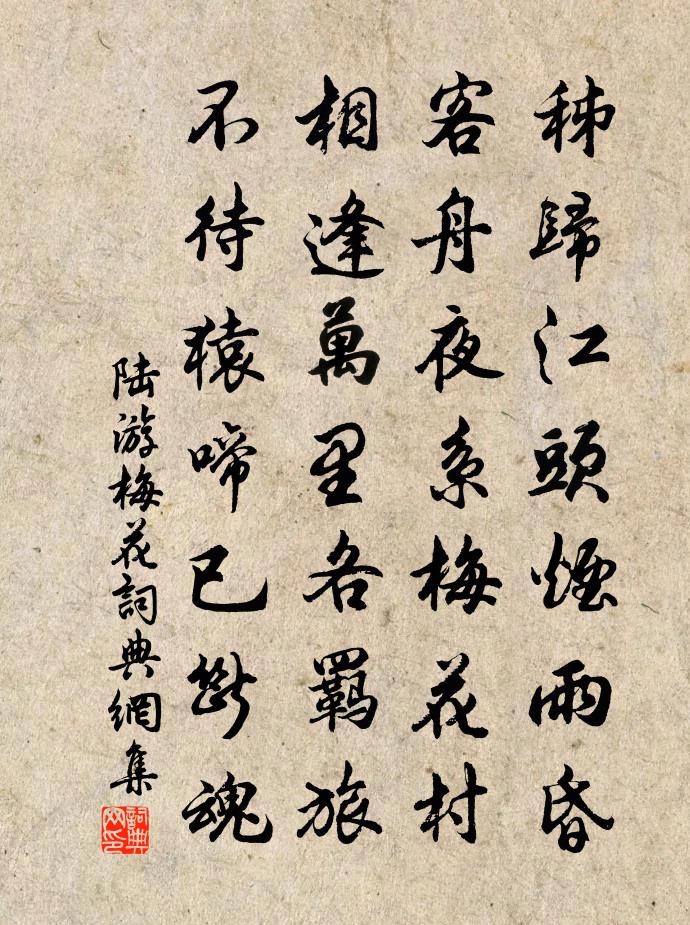 秭歸江頭煙雨昏
客舟夜系梅花村
相逢萬里各羇旅
不待猿啼已斷魂
陸游梅花詞典網集
詞典网印